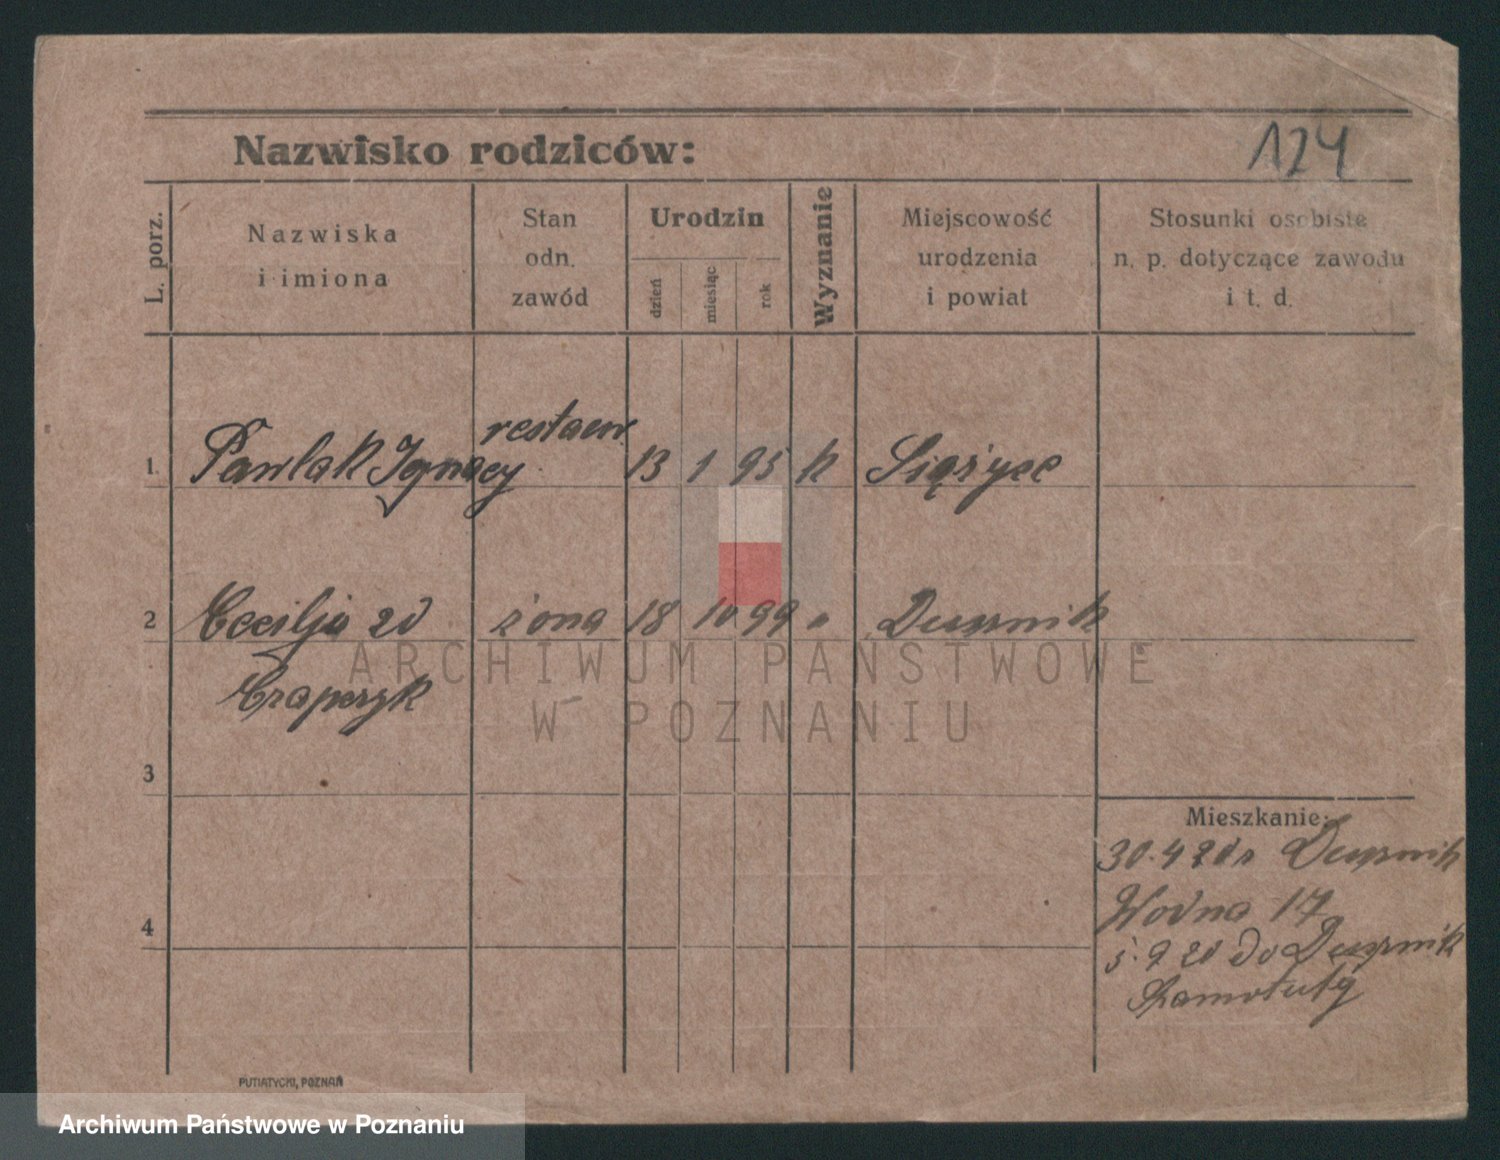 Nazwisko rodziców:
124
L. porz.
Nazwiska
i imiona
Stan
odn.
zawód
Urodzin
dzień
miesiąc
rok
Wyznanie
Miejscowość
urodzenia
i powiat
Stosunki osobiste
n. p. dotyczące zawodu
i t. d.
restaur.
1. Pawlak Ignacy 13 1 95 k
2 Cecilja zd żona 18 10 99 " Dusznik
3
4
Mieszkanie:
30. 4 20 r Dusznik
Wodna 17
5. 9 20 do Dusznik
Szamotuły
PUTIATYCKI, POZNAŃ
ARCHIWUM PAŃSTWOWE
W POZNANIU
Archiwum Państwowe w Poznaniu